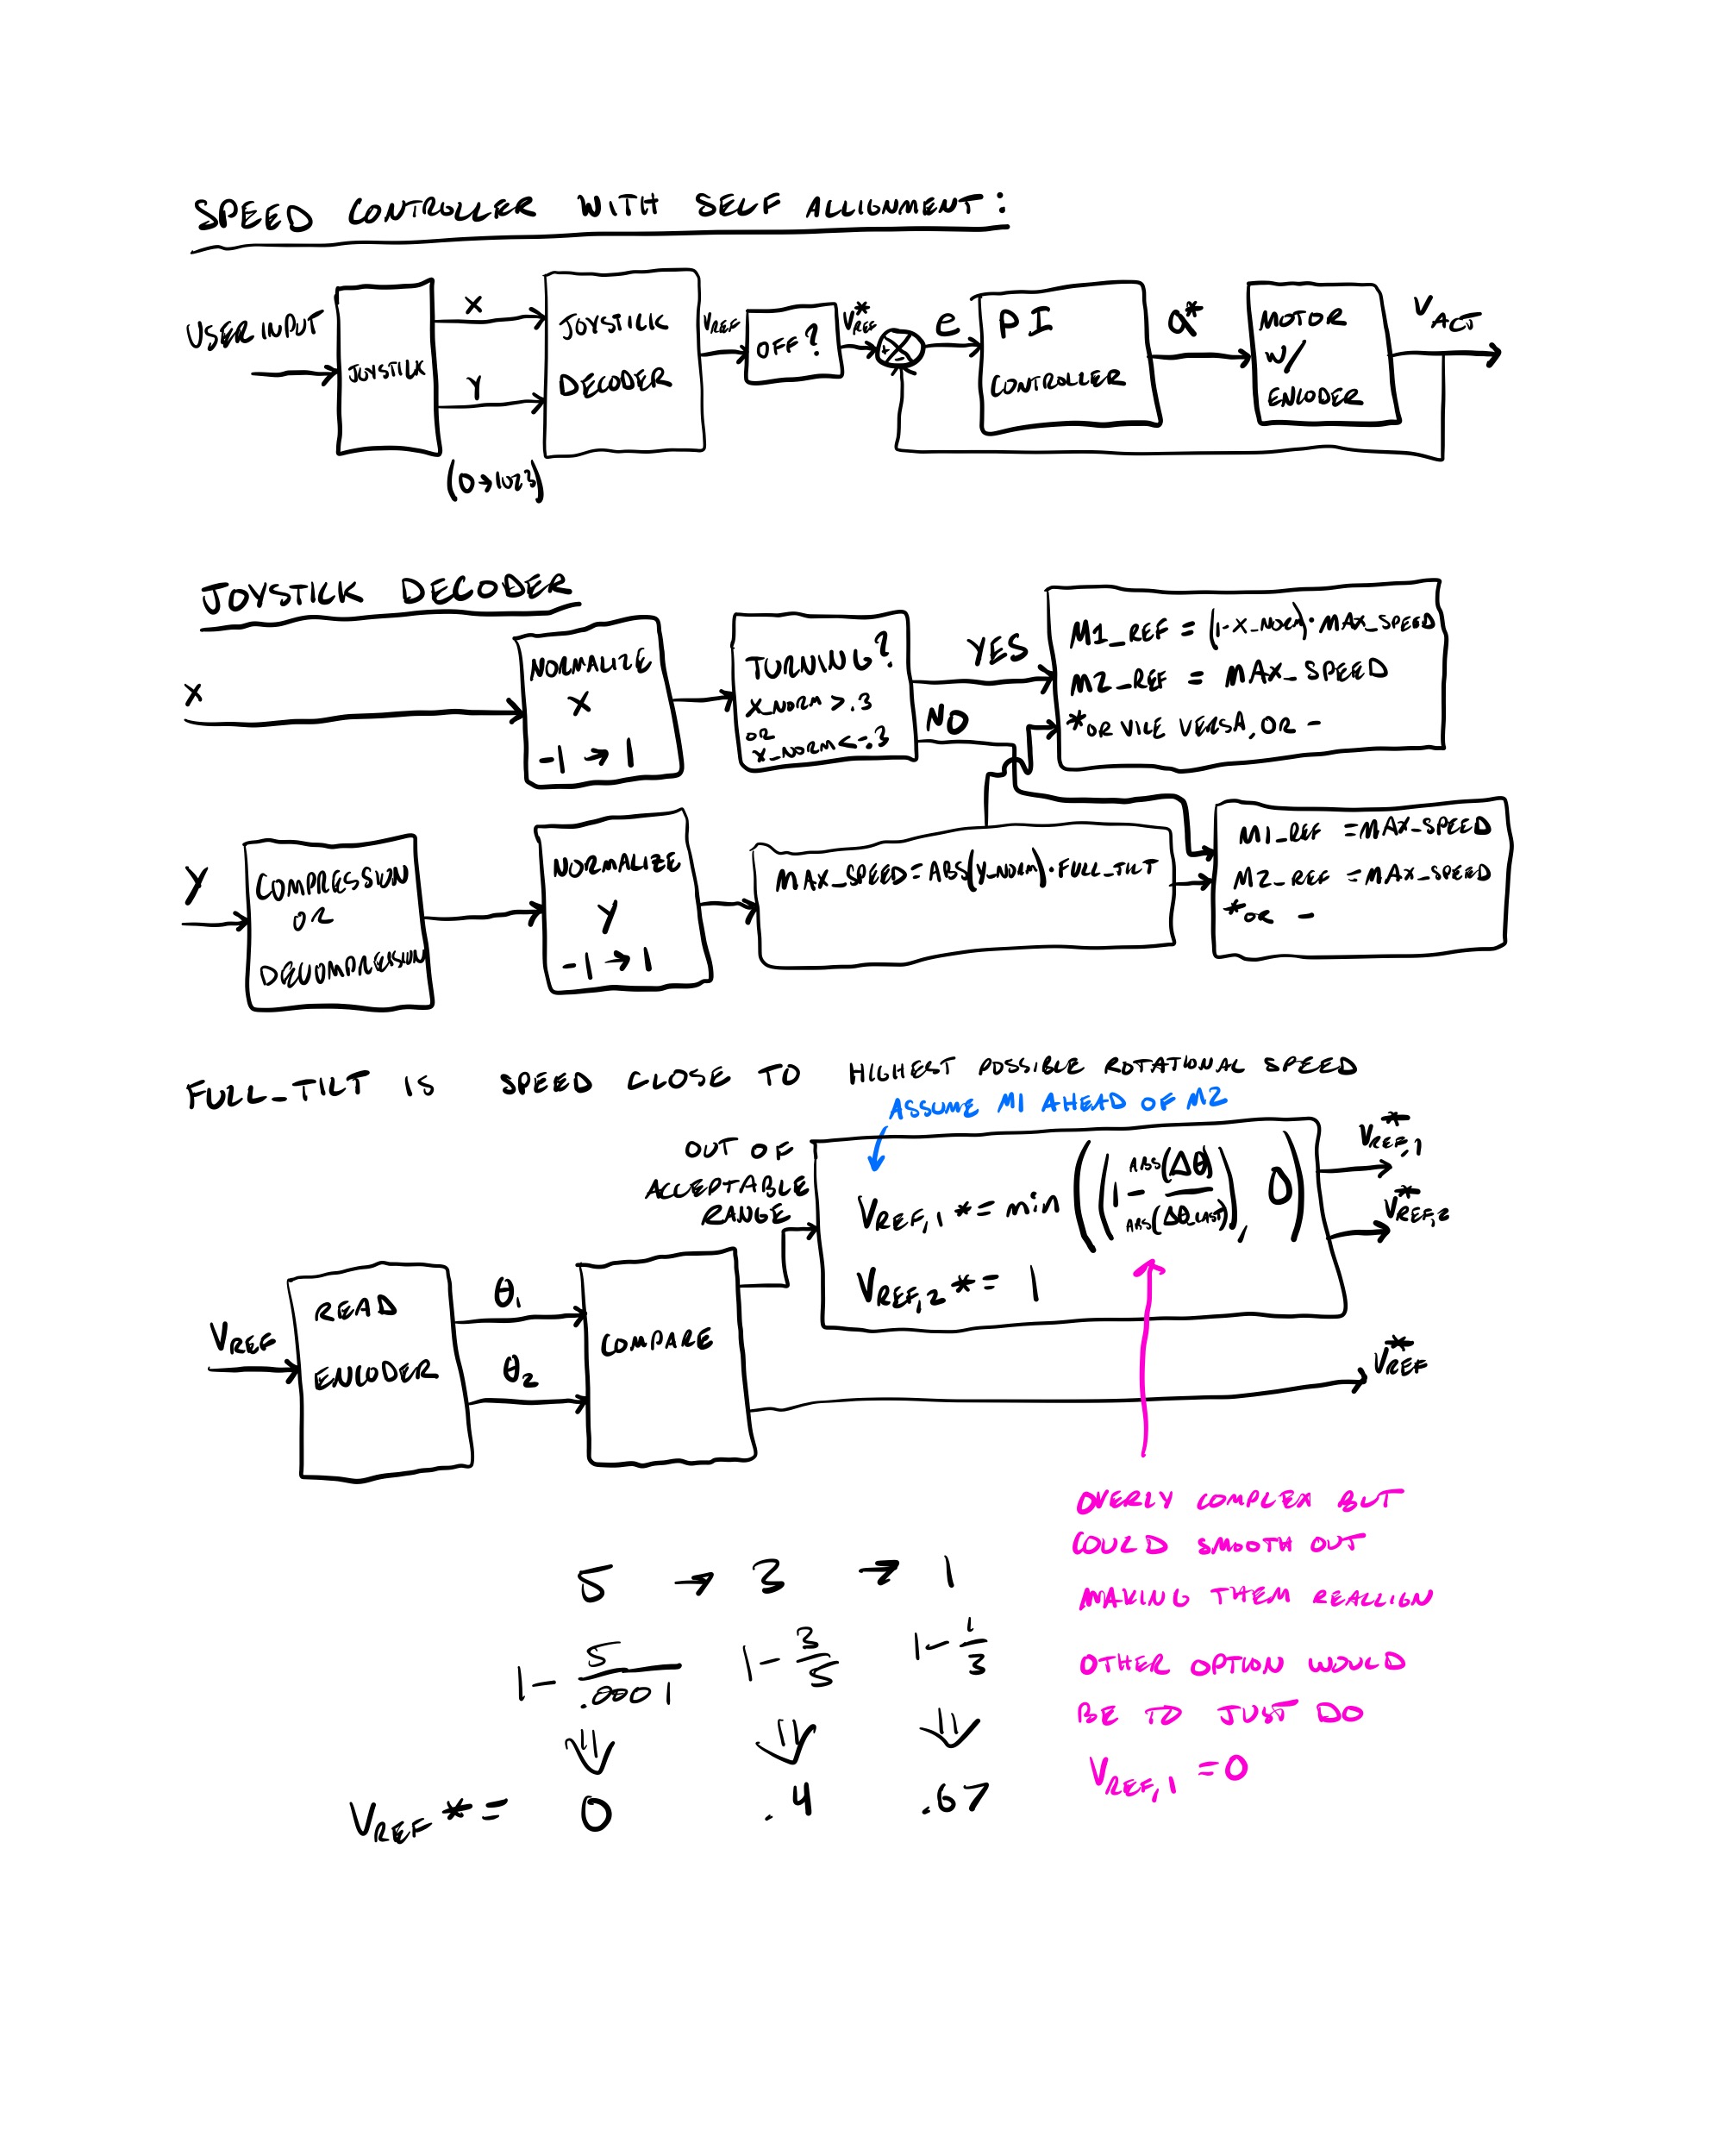 SPEED CONTROLLER WITH SELF ALLIGNMENT:
USER INPUT
JOYSTICK
X
Y
(0→1023)
JOYSTICK
DECODER
VREF
OFF?
V*REF
e
PI
CONTROLLER
a*
MOTOR
W/
ENCODER
VACT
JOYSTICK DECODER
X
NORMALIZE
X
-1 → 1
TURNING?
X_NORM >.3
OR
X_NORM <-.3
YES
NO
M1_REF = (1-X_NORM)·MAX_SPEED
M2_REF = MAX_SPEED
*OR VICE VERSA, OR -
Y
COMPRESSION
OR
DECOMPRESSION
NORMALIZE
Y
-1 → 1
MAX_SPEED = ABS(Y_NORM)·FULL_TILT
M1_REF =MAX_SPEED
M2_REF =MAX_SPEED
*OR -
FULL_TILT IS SPEED CLOSE TO HIGHEST POSSIBLE ROTATIONAL SPEED
ASSUME M1 AHEAD OF M2
OUT OF
ACCEPTABLE
RANGE
VREF,1 *= min((1- ABS(Δθ)/ABS(Δθ_LAST)), 0)
VREF,2 *= 1
V*REF,1
V*REF,2
VREF
READ
ENCODER
θ1
θ2
COMPARE
V*REF
OVERLY COMPLEX BUT
COULD SMOOTH OUT
MAKING THEM REALLIGN
OTHER OPTION WOULD
BE TO JUST DO
VREF,1 =0
5 → 3 → 1
1- 5/.0001 1- 3/5 1- 1/3
VREF *= 0 .4 .67